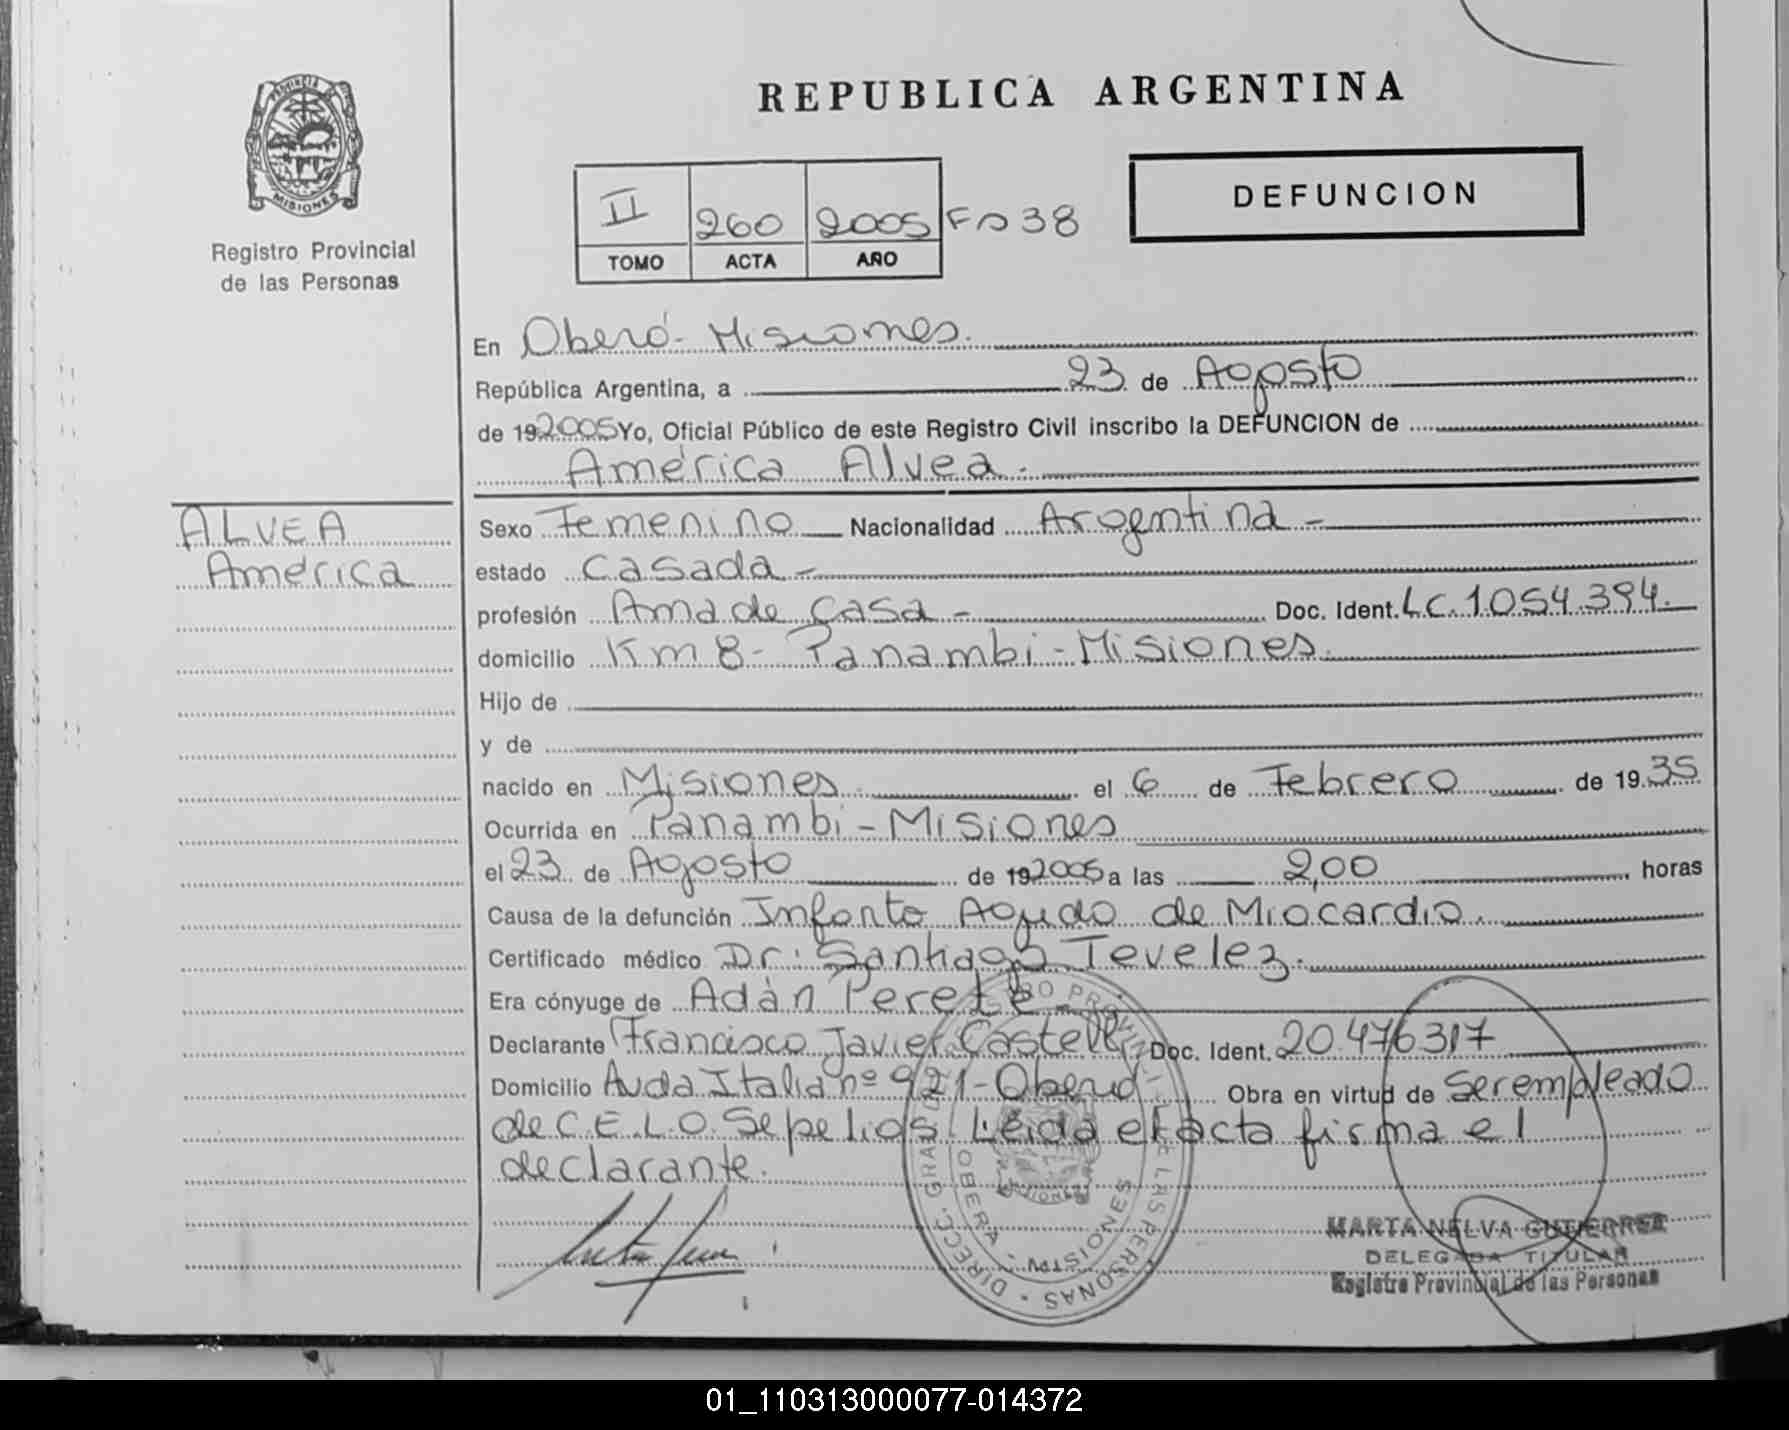 REPUBLICA ARGENTINA
PROVINCIA DE
MISIONES
Registro Provincial
de las Personas
II 260 2005 Fº 38
TOMO ACTA AÑO
DEFUNCION
En Oberá - Misiones.
República Argentina, a 23 de Agosto
de 192005 Yo, Oficial Público de este Registro Civil inscribo la DEFUNCION de
América Alvea.
ALVEA
América
Sexo Femenino Nacionalidad Argentina -
estado Casada -
profesión Ama de casa - Doc. Ident. L.C. 1054.394.
domicilio Km 8 - Panambi - Misiones.
Hijo de
y de
nacido en Misiones. el 6 de Febrero de 19 35
Ocurrida en Panambi - Misiones
el 23 de Agosto de 192005 a las 2,00 horas
Causa de la defunción Infarto Agudo de Miocardio.
Certificado médico Dr. Santiago Tevelez.
Era cónyuge de Adán Pereté
Declarante Francisco Javier Castell Doc. Ident. 20.476317
Domicilio Avda Italia nº 921 - Oberá Obra en virtud de Ser empleado
de C.E.L.O. Sepelios. Leida el acta firma el
declarante.
DIRECC. GRAL. DEL REGISTRO PROVINCIAL DE LAS PERSONAS
OBERA - MISIONES
MARTA NELVA GUTIERREZ
DELEGADA TITULAR
Registro Provincial de las Personas
01_110313000077-014372